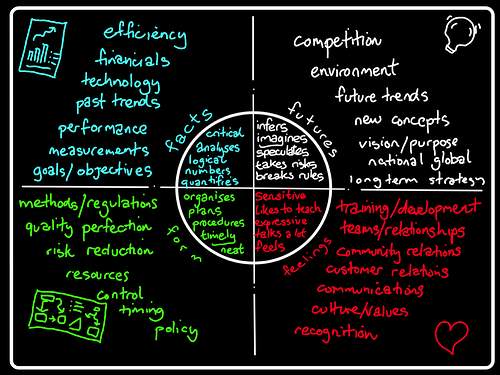 efficiency
financials
technology
past trends
performance
measurements
goals/objectives
facts
critical
analyses
logical
numbers
quantifies
competition
environment
future trends
new concepts
vision/purpose
national global
long term strategy
futures
infers
imagines
speculates
takes risks
breaks rules
methods/regulations
quality perfection
risk reduction
resources
control
timing
policy
form
organises
plans
procedures
timely
neat
sensitive
likes to teach
expressive
talks a lot
feels
feelings
training/development
teams/relationships
community relations
customer relations
communications
culture/values
recognition